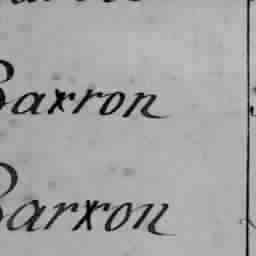 Barron
Barron